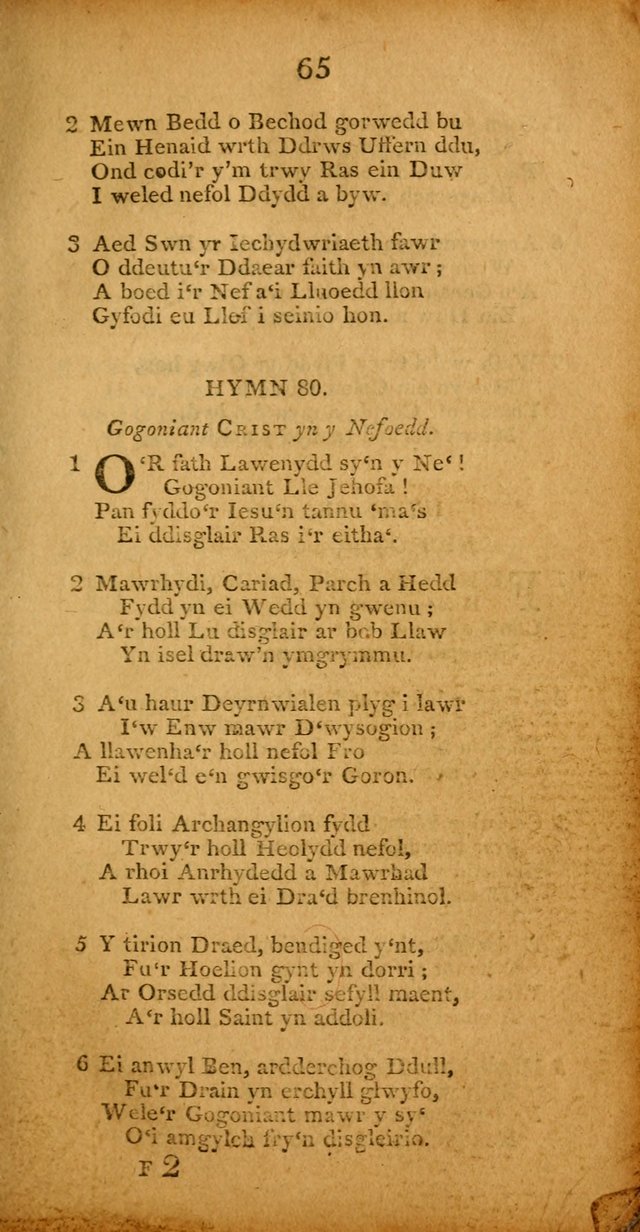 65
2 Mewn Bedd o Bechod gorwedd bu
Ein Henaid wrth Ddrws Uffern ddu,
Ond codi'r y'm trwy Ras ein Duw
I weled nefol Ddydd a byw.
3 Aed Swn yr Iechydwriaeth fawr
O ddeutu‘r Ddaear faith yn awr ;
A boed i‘r Nef a‘i Lluoedd llon
Gyfodi eu Llef i seinio hon.
HYMN 80.
Gogoniant CRIST yn y Nefoedd.
1 O‘R fath Lawenydd sy‘n y Ne‘ !
Gogoniant Lle Jehofa !
Pan fyddo‘r Iesu‘n tannu ‘ma‘s
Ei ddisglair Ras i‘r eitha‘.
2 Mawrhydi, Cariad, Parch a Hedd
Fydd yn ei Wedd yn gwenu ;
A‘r holl Lu disglair ar bob Llaw
Yn isel draw’n ymgrymmu.
3 A‘u haur Deyrnwialen plyg i lawr
I‘w Enw mawr D‘wysogion ;
A llawenha‘r holl nefol Fro
Ei wel‘d e‘n gwisgo‘r Goron.
4 Ei foli Archangylion fydd
Trwy‘r holl Heolydd nefol,
A rhoi Anrhydedd a Mawrhad
Lawr wrth ei Dra‘d brenhinol.
5 Y tirion Draed, bendiged y‘nt,
Fu‘r Hoelion gynt yn dorri ;
Ar Orsedd ddisglair sefyll maent,
A‘r holl Saint yn addoli.
6 Ei anwyl Ben, ardderchog Ddull,
Fu‘r Drain yn erchyll glwyfo,
Wele‘r Gogoniant mawr y sy‘
O‘i amgylch fry‘n disgleirio.
F 2